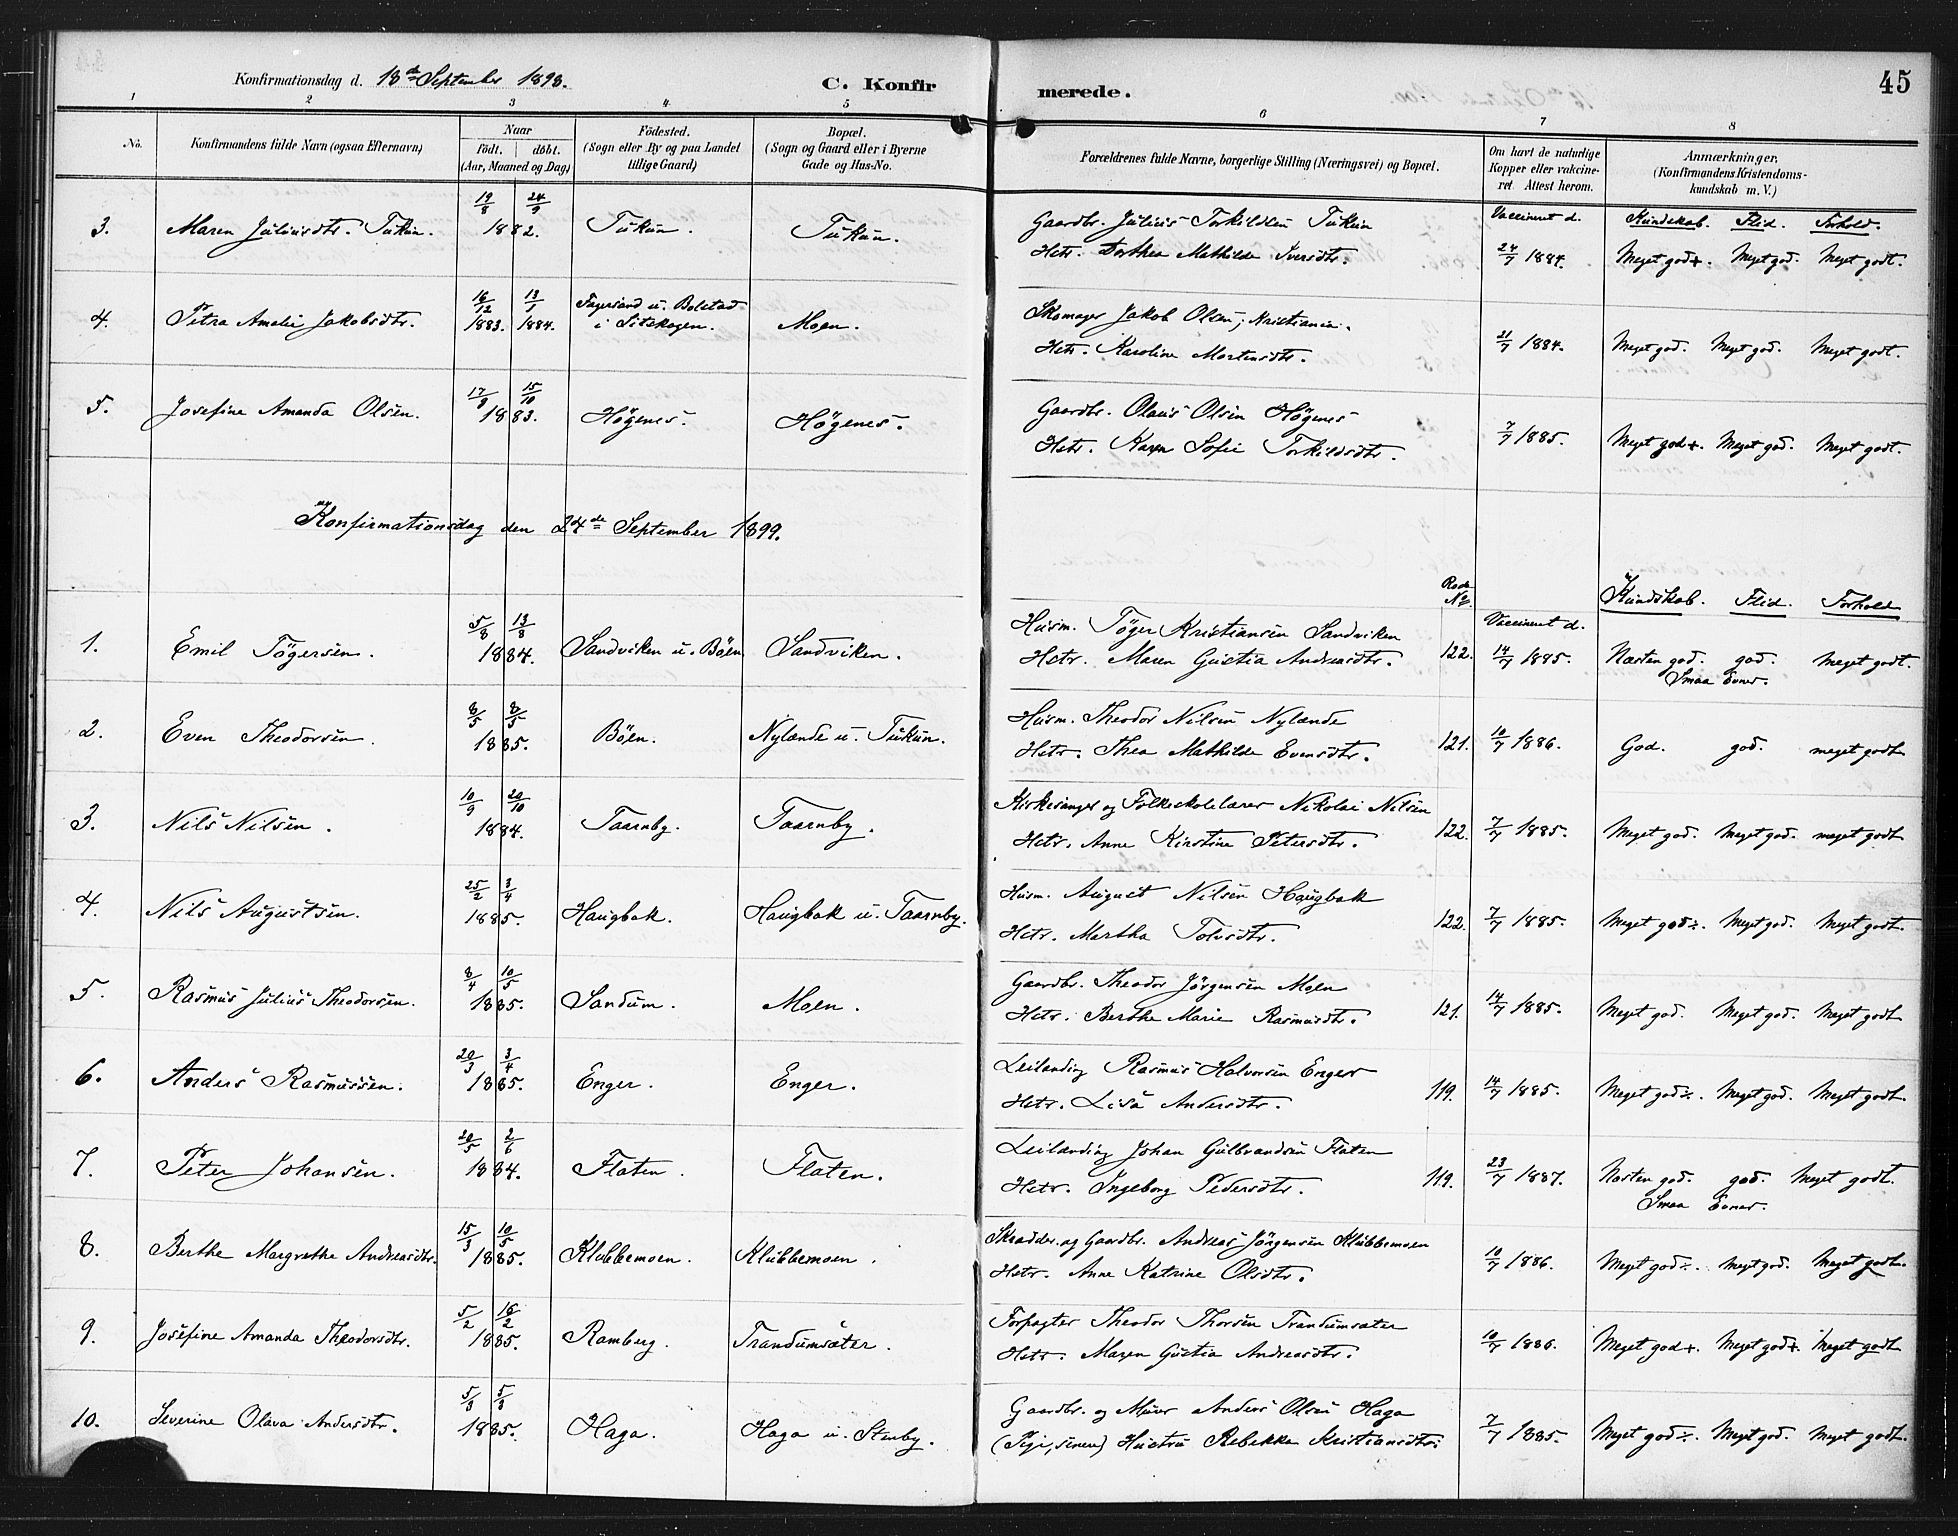 45
Konfirmationsdag d. 18de September 1898.
C. Konfirmerede.
1 2 3 4 5 6 7 8
No.
Konfirmandens fulde Navn (ogsaa Efternavn)
Naar
födt. döbt.
(Aar, Maaned og Dag)
Födested.
(Sogn eller By og paa Landet
tillige Gaard)
Bopæl.
(Sogn og Gaard eller i Byerne
Gade og Hus-No.
Forældrenes fulde Navne, borgerlige Stilling (Næringsvei) og Bopæl.
Om havt de naturlige
Kopper eller vakcine-
ret. Attest herom.
Anmærkninger.
(Konfirmandens Kristendoms-
kundskab m. V.)
Vaccineret d. Kundskab. Flid. Forhold.
3. Maren Juliusdtr. Tukun. 19/8 24/9 1882. Tukun. Tukun. Gaardbr. Julius Torkildsen Tukun
Hstr. Dorthea Mathilde Iversdtr. 24/7 1884. Meget god+. Meget god. Meget godt.
4. Petra Amalie Jakobsdtr. 16/12 1883. 13/1 1884. Fagersand u. Bolstad
i Sitskogen. Moen. Skomager Jakob Olsen, Kristiania.
Hstr. Karoline Mortensdtr. 21/7 1884. Meget god. Meget god. Meget godt.
5. Josefine Amanda Olsen. 17/9 15/10 1883. Högenes. Högenes. Gaardbr. Olaus Olsen Högenes
Hstr. Karen Sofie Torkildsdtr. 7/7 1885. Meget god+. Meget god. Meget godt.
Konfirmationsdag den 24de September 1899.
Rode
No. Vaccineret d. Kundskab. Flid. Forhold
1. Emil Tögersen. 5/8 13/8 1884. Sandviken u. Böen Sandviken. Husm. Töger Kristiansen Sandviken
Hstr. Maren Gustia Andreasdtr. 122. 14/7 1885. Næsten god. god. Meget godt.
Smaa Evner.
2. Even Theodorsen. 8/5 8/5 1885. Böen. Nylænde u. Tukun. Husm. Theodor Nilsen Nylænde
Hstr. Thea Mathilde Evensdtr. 121. 10/7 1886. God. god. meget godt
3. Nils Nilsen. 10/9 20/10 1884. Taarnby. Taarnby. Kirkesanger og Folkeskolelærer Nikolai Nilsen
Hstr. Anne Kirstine Petersdtr. 122. 7/7 1885. Meget god. Meget god. meget godt
4. Nils Augustsen. 25/2 3/4 1885. Haugbak. Haugbak u. Taarnby. Husm. August Nilsen Haugbak
Hstr. Martha Tolvsdtr. 122. 7/7 1885. Meget god÷. Meget god. Meget godt.
5. Rasmus Julius Theodorsen. 8/4 10/5 1885. Sandum. Moen. Gaardbr. Theodor Jörgensen Moen
Hstr. Berthe Marie Rasmusdtr. 121. 14/7 1885. Meget god. Meget god. Meget godt
6. Anders Rasmussen. 20/3 3/4 1885. Enger. Enger. Leilænding Rasmus Halvorsen Enger
Hstr. Lisa Andersdtr. 119. 14/7 1885. Meget god÷. Meget god. Meget godt
7. Peter Johansen. 20/5 2/6 1884. Flaten. Flaten. Leilænding Johan Gulbrandsen Flaten
Hstr. Ingeborg Pedersdtr. 119. 23/7 1887. Næsten god. god. Meget godt.
Smaa Evner.
8. Berthe Margrethe Andreasdtr. 15/3 10/5 1885. Klubbemoen. Klubbemoen. Skrædder og Gaardbr. Andreas Jörgensen Klubbemoen
Hstr. Anne Katrine Olsdtr. 10/7 1886. Meget god÷. meget god. Meget godt.
9. Josefine Amanda Theodorsdtr. 5/2 16/2 1885. Ramberg. Trandumsæter. Forpagter Theodor Thorsen Trandumsæter
Hstr. Maren Gustia Andreasdtr. 10/7 1886. Meget god+. Meget god+. Meget godt
10. Severine Olava Andersdtr. 5/3 5/3 1885. Haga. Haga u. Stenby. Gaardbr. og Murer Anders Olsen Haga
Hustru Rebekka Kristiansdtr. 7/7 1885. Meget god÷. Meget god. Meget godt.